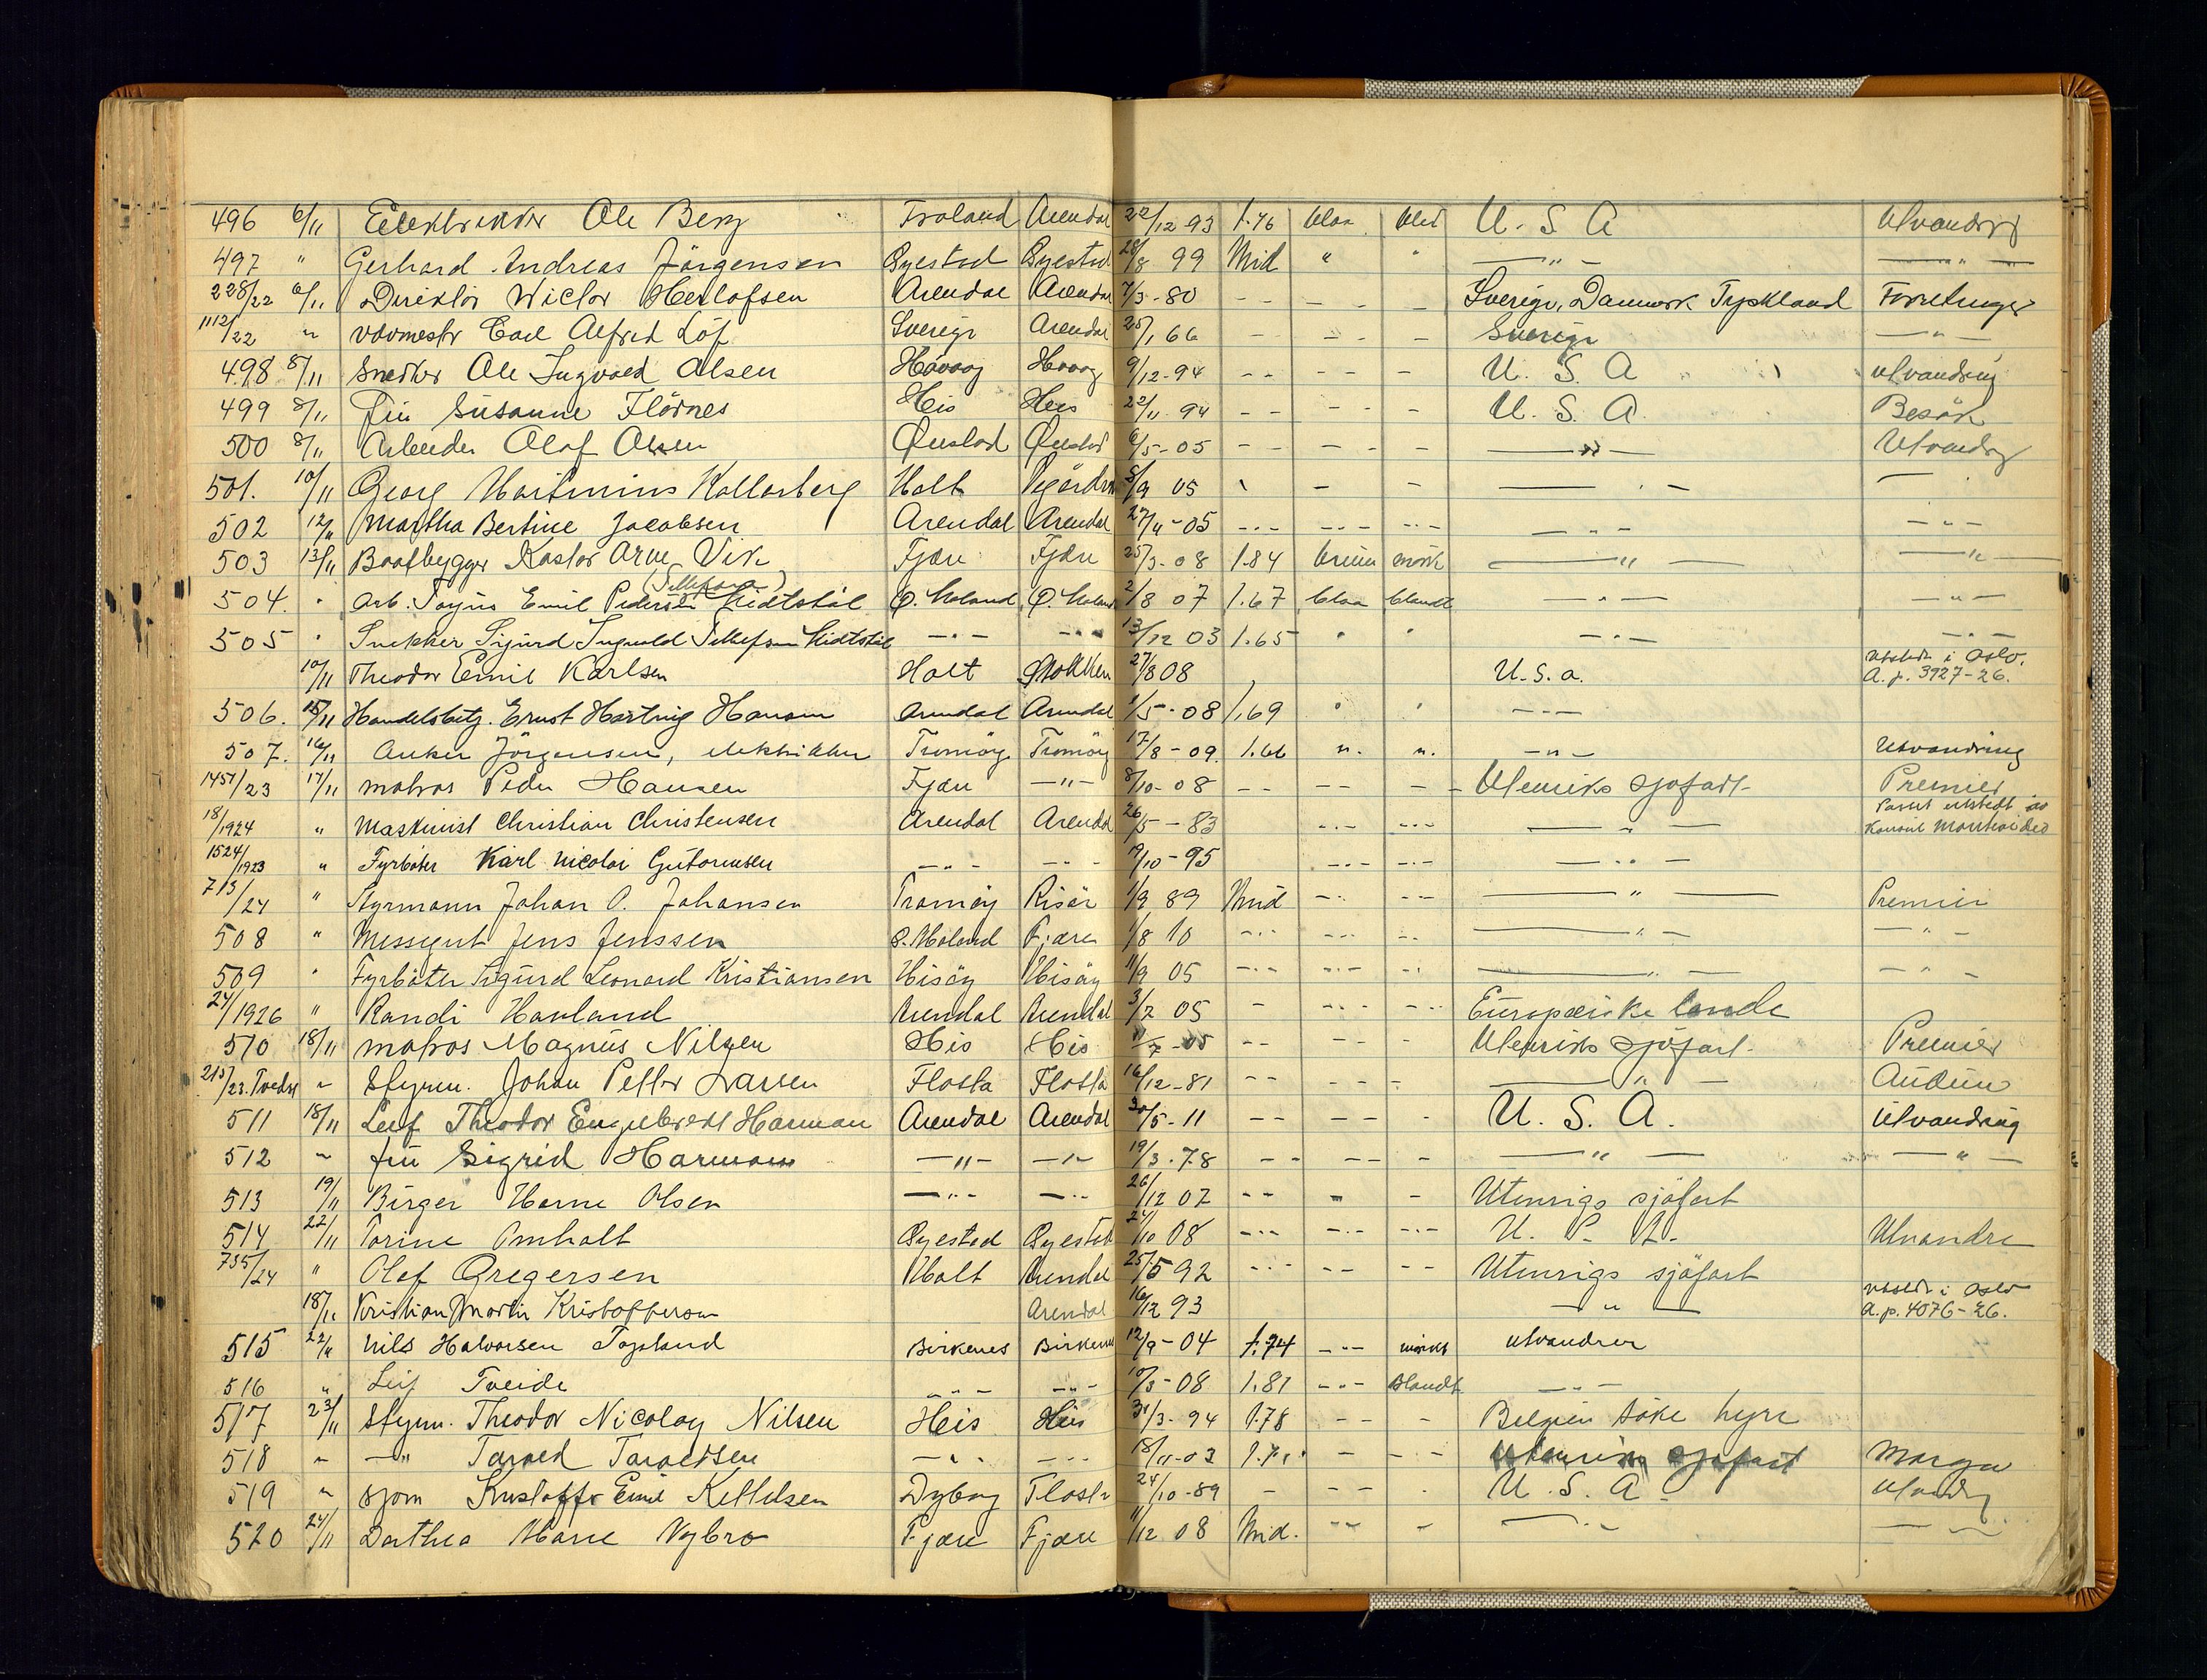 496 6/11 Elektriker Ole Berg Froland Arendal 22/12 93 1.76 blaa blid U. S. A Utvandrg
497 " Gerhard Andreas Jörgensen Öyestad Öyestad 28/8 99 Mid " " —"— —"—
228/22 6/11 Direktör Wictor Herlofsen Arendal Arendal 7/3-80 -- -- - Sverige, Danmark Tyskland Forretninger
1112/22 " Carl Alfred Löf Sverige Arendal 25/1 66 -- -- - Sverige —"—
498 8/11 Snedker Ole Ingvald Olsen Hövaag Hövaag 9/12-94 -- -- - U. S. A utvandring
499 8/11 Frü Susanne Flörnes His His 22/11 94 -- -- - U. S. A. Besök
500 8/11 Arbeider Olaf Olsen Öiestad Öiestad 6/5-05 -- - - —"— Utvandrg
501. 10/11 Georg Martinius Kallarberg Holt 8/9 05 - - — " —
502 12/11 Martha Bertine Jacobsen Arendal Arendal 27/4-05 -"- -"- -"- —"— -"-
503 13/11 Baatbygger Kastor Arne Vik Fjære Fjære 25/3-08 1.84 brün mörk —"— —"—
(Tellefsen)
504. " Arb. Emil Pedersen Midtstöl Ö. Moland Ö. Moland 2/8 07 1.67 blaa blandt —"— -"-
505 " Snekker Sigurd Ingvald Tellefsen Midtstöl -"- -"- 13/12 03 1.65 " " -"- -"-
10/11 Theodor Emil Karlsen Holt Stokken 27/8 08 U.S.a. utstedt i Oslo. A.p. 3927-26.
506. 15/11 Handelsbetj. Ernst Harting Hansen Arendal Arendal 1/5-08 1.69 " " -"-
507. 16/11 Anker Jörgensen, elektriker Tromöy Tromöy 17/8-09. 1.66 ". ". -"- Utvandring
1451/23 17/11 matros Peder Hansen Fjære -"- 8/10-08 -- -- - Utenriks sjöfart Premier
18/1924 " Maskinist Christian Christensen Arendal Arendal 26/5-83 -"- -"- —"— Passet utstedt av Konsul Montevideo
1524/1923 " Fyrböter Karl Nicolai Gutormsen -"- -"- 19/10-95 -"- -"- —"—
713/24 " Styrmann Johan O. Johansen Tromöy Risör 1/9 89 Mid -"- -"- —"— Premier
508 " Messegut Jens Jenssen Ö. Moland Fjære 1/8 10 -"- -"- -"- —"— -"-
509 " Fyrböter Sigurd Leonard Kristiansen Hisöy Hisöy 11/9 05 -"- -"- -"- —"— -"-
24/1926 " Randi Havland Arendal Arendal 3/2 05 - -"- -"- Europæiske lande
510 18/11 matros Magnus Nilsen His His -05 -- -- - Utenriks Sjöfart Premier
215/23. Tvedes " Styrm. Johan Petter Larsen Flosta Flosta 16/12-81 -- -- - —"— Audun
511 18/11 Leif Theodor Engelbrekt Harman Arendal Arendal 30/5-11 -- -- - U. S. A. Utvandring
512 " frü Sigrid Harmann -"- -"- 19/3-78 -- -- - —"— —"—
513 19/11 Birger Horne Olsen -"- -"- 26/12 07 -- - - Utenrigs sjöfart
514 22/11 Torine Omholt Öyestad Öyestad 24/10 08 -"- -"- -"- U. S. A. Utvandre
735/24 " Olaf Gregersen Holt Arendal 25/5 92 -"- -- -- Utenrigs sjöfart
18/11 Kristian Martin Kristoffersen Arendal 16/12 93 —"— utstedt i Oslo A.p. 4076-26.
515 22/11 Nils Halvorsen Topland Birkenes Birkenes 12/9-04 1.74 -"- mörkt utvandrer
516 " Leif Tveide -"- -"- 10/3-08 1.81 -"- blandt -"-
517 23/11 Styrm. Theodor Nicolay Nilsen His His 31/3-94 1.78 -- - Belgien söke hyre
518 " -"- Tarald Taraldsen -"- -"- 18/11-03 - - - Utenriks sjöfart
519 " sjöm Kristoffer Emil Kittelsen Dybvåg Flosta 24/10-89 - -- - U. S. A Utvandrg
520 24/11 Dorthea Marie Nybro Fjære Fjære 11/12 08 Mid. -"- - —"— —"—